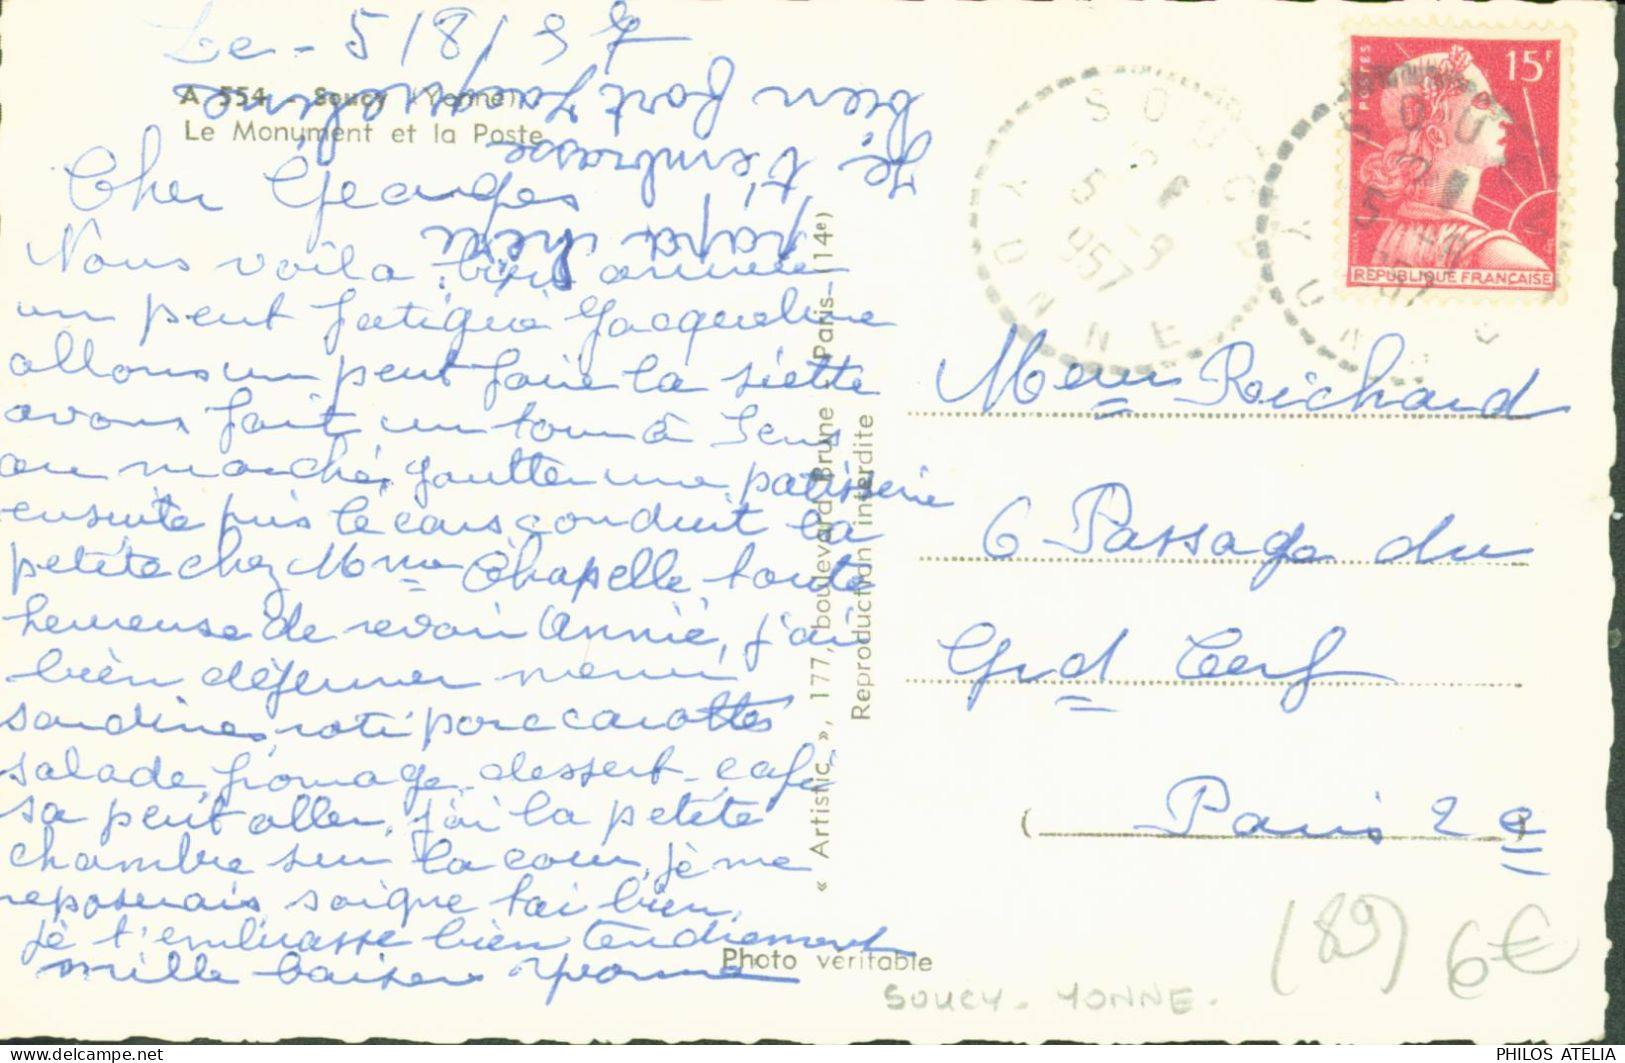 Le - 5/8/57
A 554 - Soucy (Yonne)
Le Monument et la Poste
Cher Georges
Nous voila bien arrivée
un peut fatigué Jacqueline
allons un peut faire la siette
avons fait un tour à Sens
au marché goutter une patisserie
ensuite pris le cars conduit la
petite chez Mme Chapelle toute
heureuse de revoir Annie, j'ai
bien déjeuner menu
sardines, roti porc carottes
salade, fromage dessert - café
sa peut aller, j'ai la petite
chambre sur la cour, je me
reposerais soigne toi bien,
je t'embrasse bien tendrement
mille baisers Yvonne
papa chéri
Je t'embrasse
bien fort Jacqueline
« Artistic », 177, boulevard Brune - Paris (14e)
Reproduction interdite
Photo véritable
SOUCY
5 - 8
1957
YONNE
POSTES
15F
REPUBLIQUE FRANÇAISE
SOUCY
YONNE
Meur Reichard
6 Passage du
Grd Cerf
( Paris 2e )
(89) 6€
SOUCY - YONNE -
PHILOS ATELIA